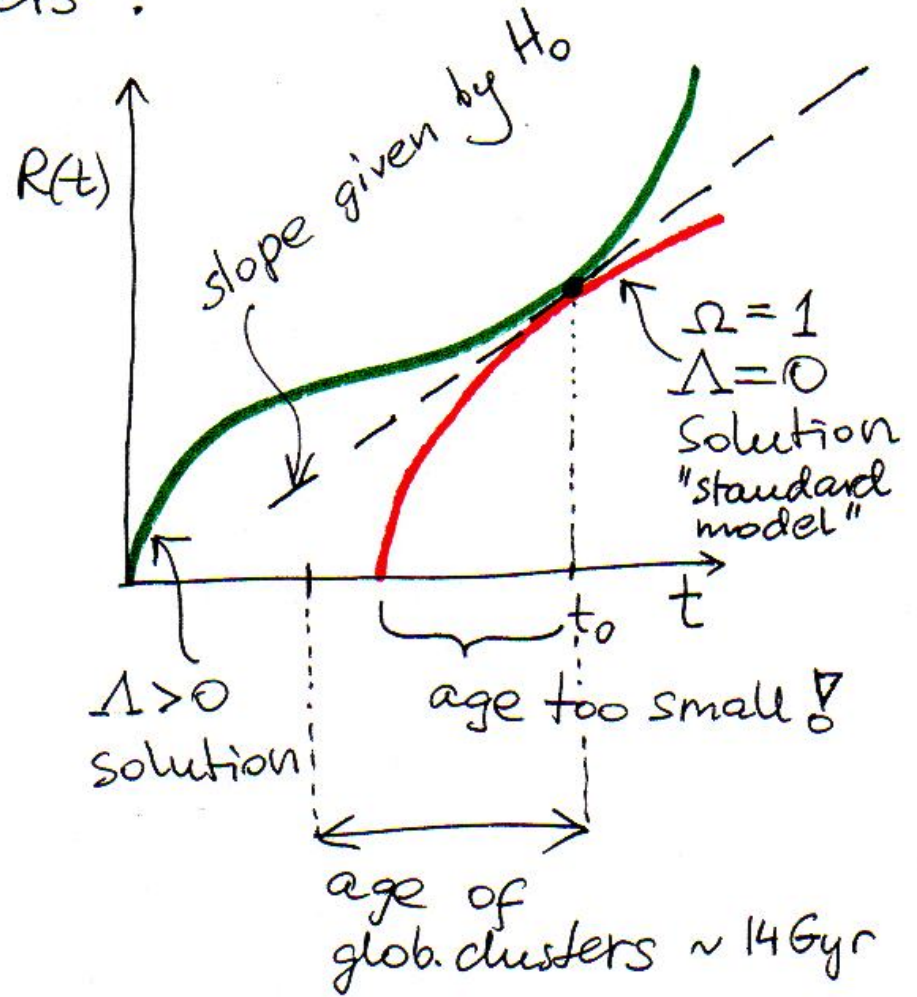 R(t)
slope given by H₀
Ω = 1
Λ = 0
Solution
"standard
model"
t₀
t
Λ > 0
solution
age too small!
age of
glob. clusters ~ 14 Gyr